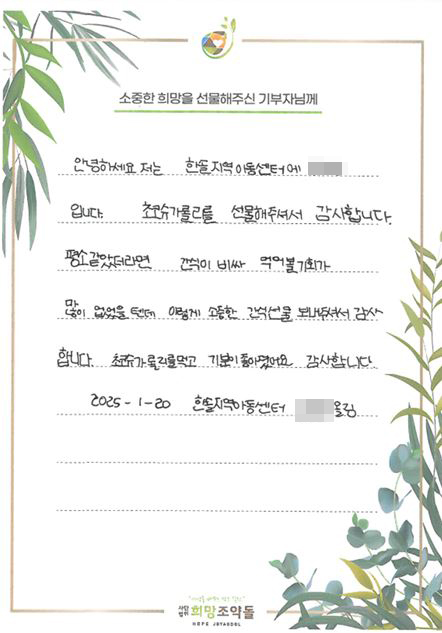 소중한 희망을 선물해주신 기부자님께
안녕하세요 저는 한솔지역아동센터에
입니다. 초코슈가룰리를 선물해주셔서 감사합니다.
평소같았더라면 간식이 비싸 먹어볼기회가
많이 없었을 텐데 이렇게 소중한 간식선물 보내주셔서 감사
합니다. 초코슈가룰리를먹고 기분이좋아졌어요 감사합니다.
2025-1-20 한솔지역아동센터 올림
사단법인 희망조약돌
HOPE JOYAGDOL